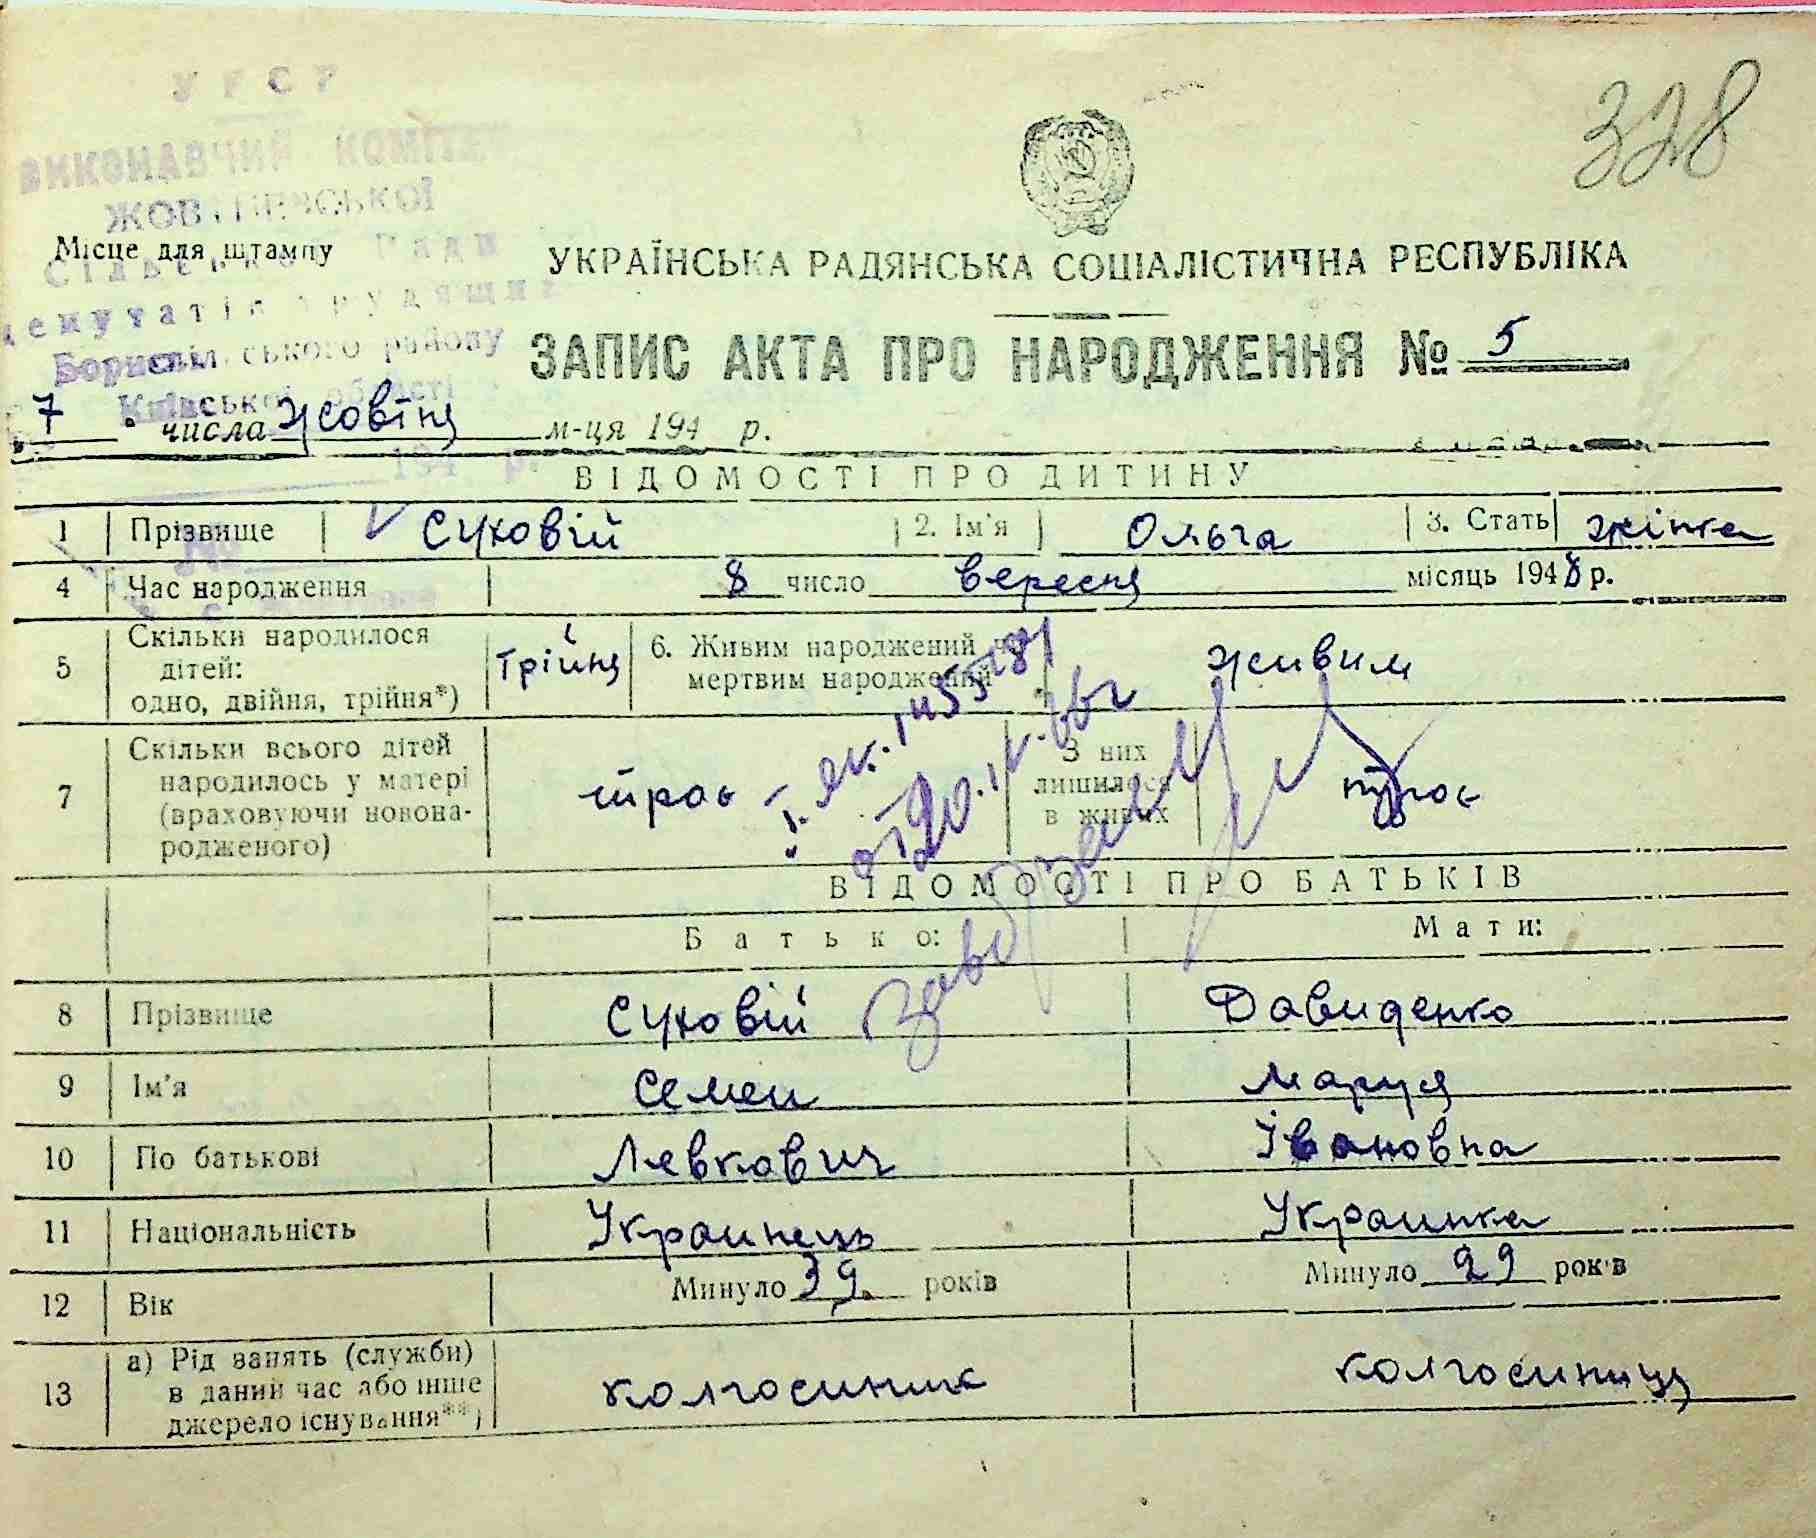 328
УРСР
ВИКОНАВЧИЙ КОМІТЕТ
ЖОВТНЕВСЬКОЇ
Сільської Ради
депутатів трудящих
Бориспільського району
Київської області
194 р.
Місце для штампу
УКРАЇНСЬКА РАДЯНСЬКА СОЦІАЛІСТИЧНА РЕСПУБЛІКА
ЗАПИС АКТА ПРО НАРОДЖЕННЯ № 5
„7" числа жовтня м-ця 194 р.
ВІДОМОСТІ ПРО ДИТИНУ
1 Прізвище Суховій 2. Ім'я Ольга 3. Стать жінка
4 Час народження 8 число вересня місяць 1948 р.
5 Скільки народилося дітей: одно, двійня, трійня*) трійня 6. Живим народжений чи мертвим народжений живим
7 Скільки всього дітей народилось у матері (враховуючи новонародженого) троє З них лишилося в живих троє
ВІДОМОСТІ ПРО БАТЬКІВ
Батько: Мати:
8 Прізвище Суховій Давиденко
9 Ім'я Семен Маруся
10 По батькові Левкович Івановна
11 Національність Украинець Украинка
12 Вік Минуло 39 років Минуло 29 років
13 а) Рід занять (служби) в даний час або інше джерело існування**) колгоспник колгоспниця